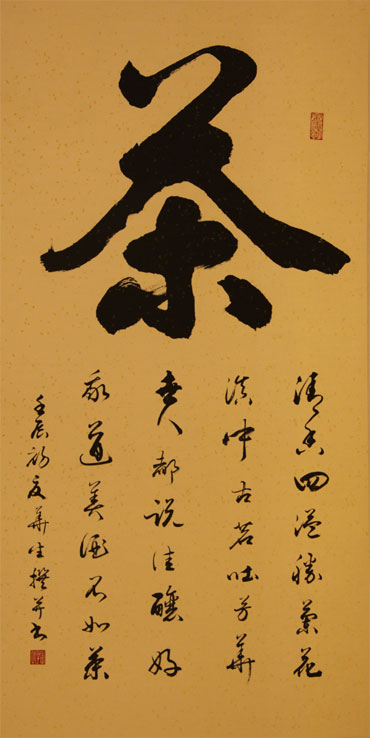 茶
清香四溢勝蘭花
滇中古茗吐芳華
世人都说佳釀好
我道美酒不如茶
壬辰初夏華生撰并书